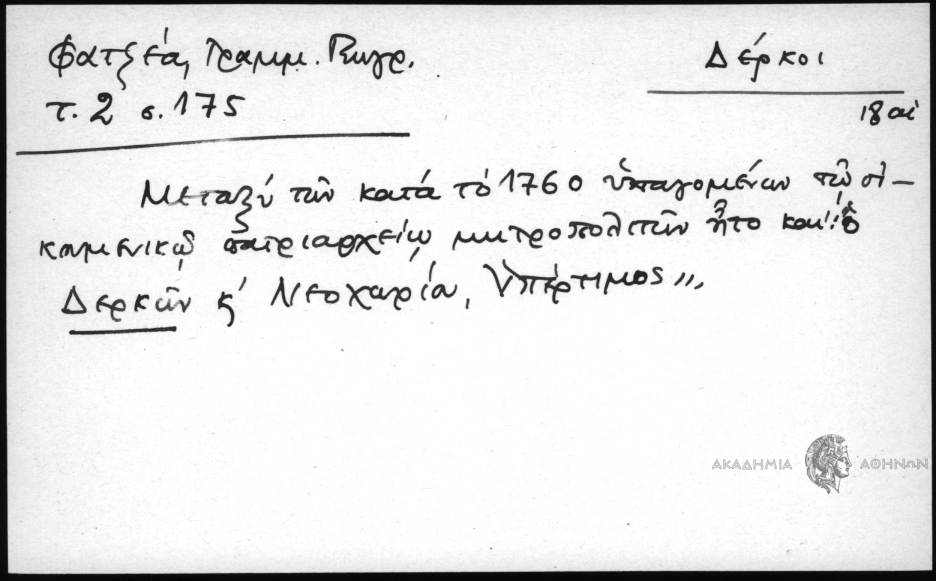 Φατζέα, Γραμμ. Γεωγρ.
τ. 2 σ. 175
Δέρκοι
18 αἰ
Μεταξύ τῶν κατά τό 1760 ὑπαγομένων τῷ οἰ-
κουμενικῷ πατριαρχείῳ μητροπολιτῶν ἦτο καί "ὁ
Δερκῶν κ' Νεοχωρίου, Ὑπέρτιμος",
ΑΚΑΔΗΜΙΑ ΑΘΗΝΩΝ